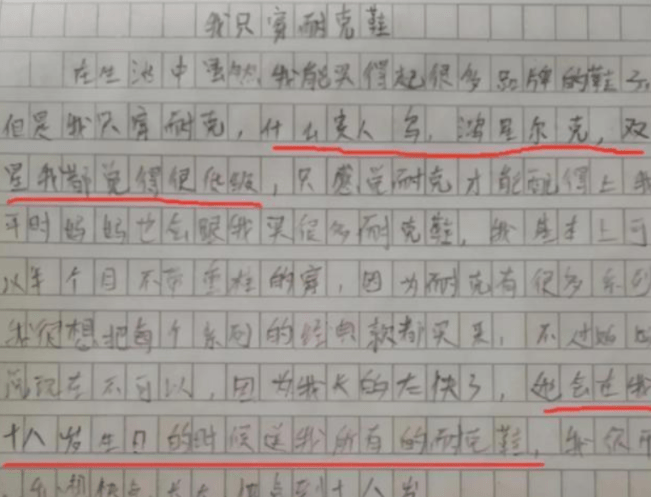 我只穿耐克鞋
在生活中虽然我能买得起很多品牌的鞋子,
但是我只穿耐克,什么安人乌,鸿星尔克,双
星我都觉得很低级,只感觉耐克才能配得上我
平时妈妈也会跟我买很多耐克鞋,我基本上可
以半个月不带重样的穿,因为耐克有很多系列
我很想把每个系列的经典款都买来,不过妈妈
说现在不可以,因为我长的太快了,她会在我
十八岁生日的时候送我所有的耐克鞋,我很
快点长大 到十八岁